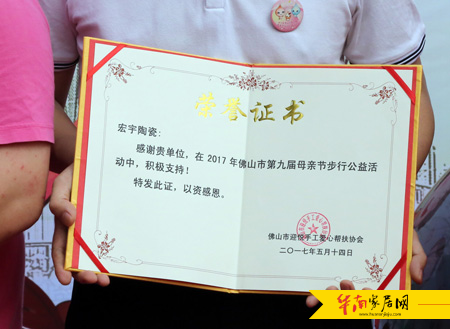 荣誉证书
宏宇陶瓷：
感谢贵单位，在2017年佛山市第九届母亲节步行公益活
动中，积极支持！
特发此证，以资感恩。
佛山市迎悦手工爱心帮扶协会
二〇一七年五月十四日
华南家居网